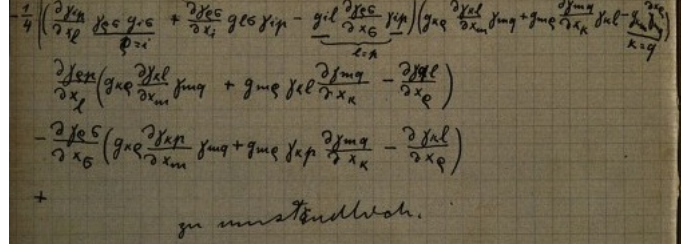 -1/4 ((∂γ_ip/∂x_l γ_ρσ g_iσ + ∂γ_ρσ/∂x_i g_lσ γ_ip - g_il ∂γ_ρσ/∂x_σ γ_ip)(g_κρ ∂γ_κl/∂x_m γ_mq + g_mρ ∂γ_mq/∂x_κ γ_κl -
ρ=i l=p κ=q
∂γ_ρp/∂x_l (g_κρ ∂γ_κl/∂x_m γ_mq + g_mρ γ_κl ∂γ_mq/∂x_κ - ∂γ_ql/∂x_ρ)
- ∂γ_ρσ/∂x_σ (g_κρ ∂γ_κp/∂x_m γ_mq + g_mρ γ_κp ∂γ_mq/∂x_κ - ∂γ_κl/∂x_ρ)
+
zu umständlich.